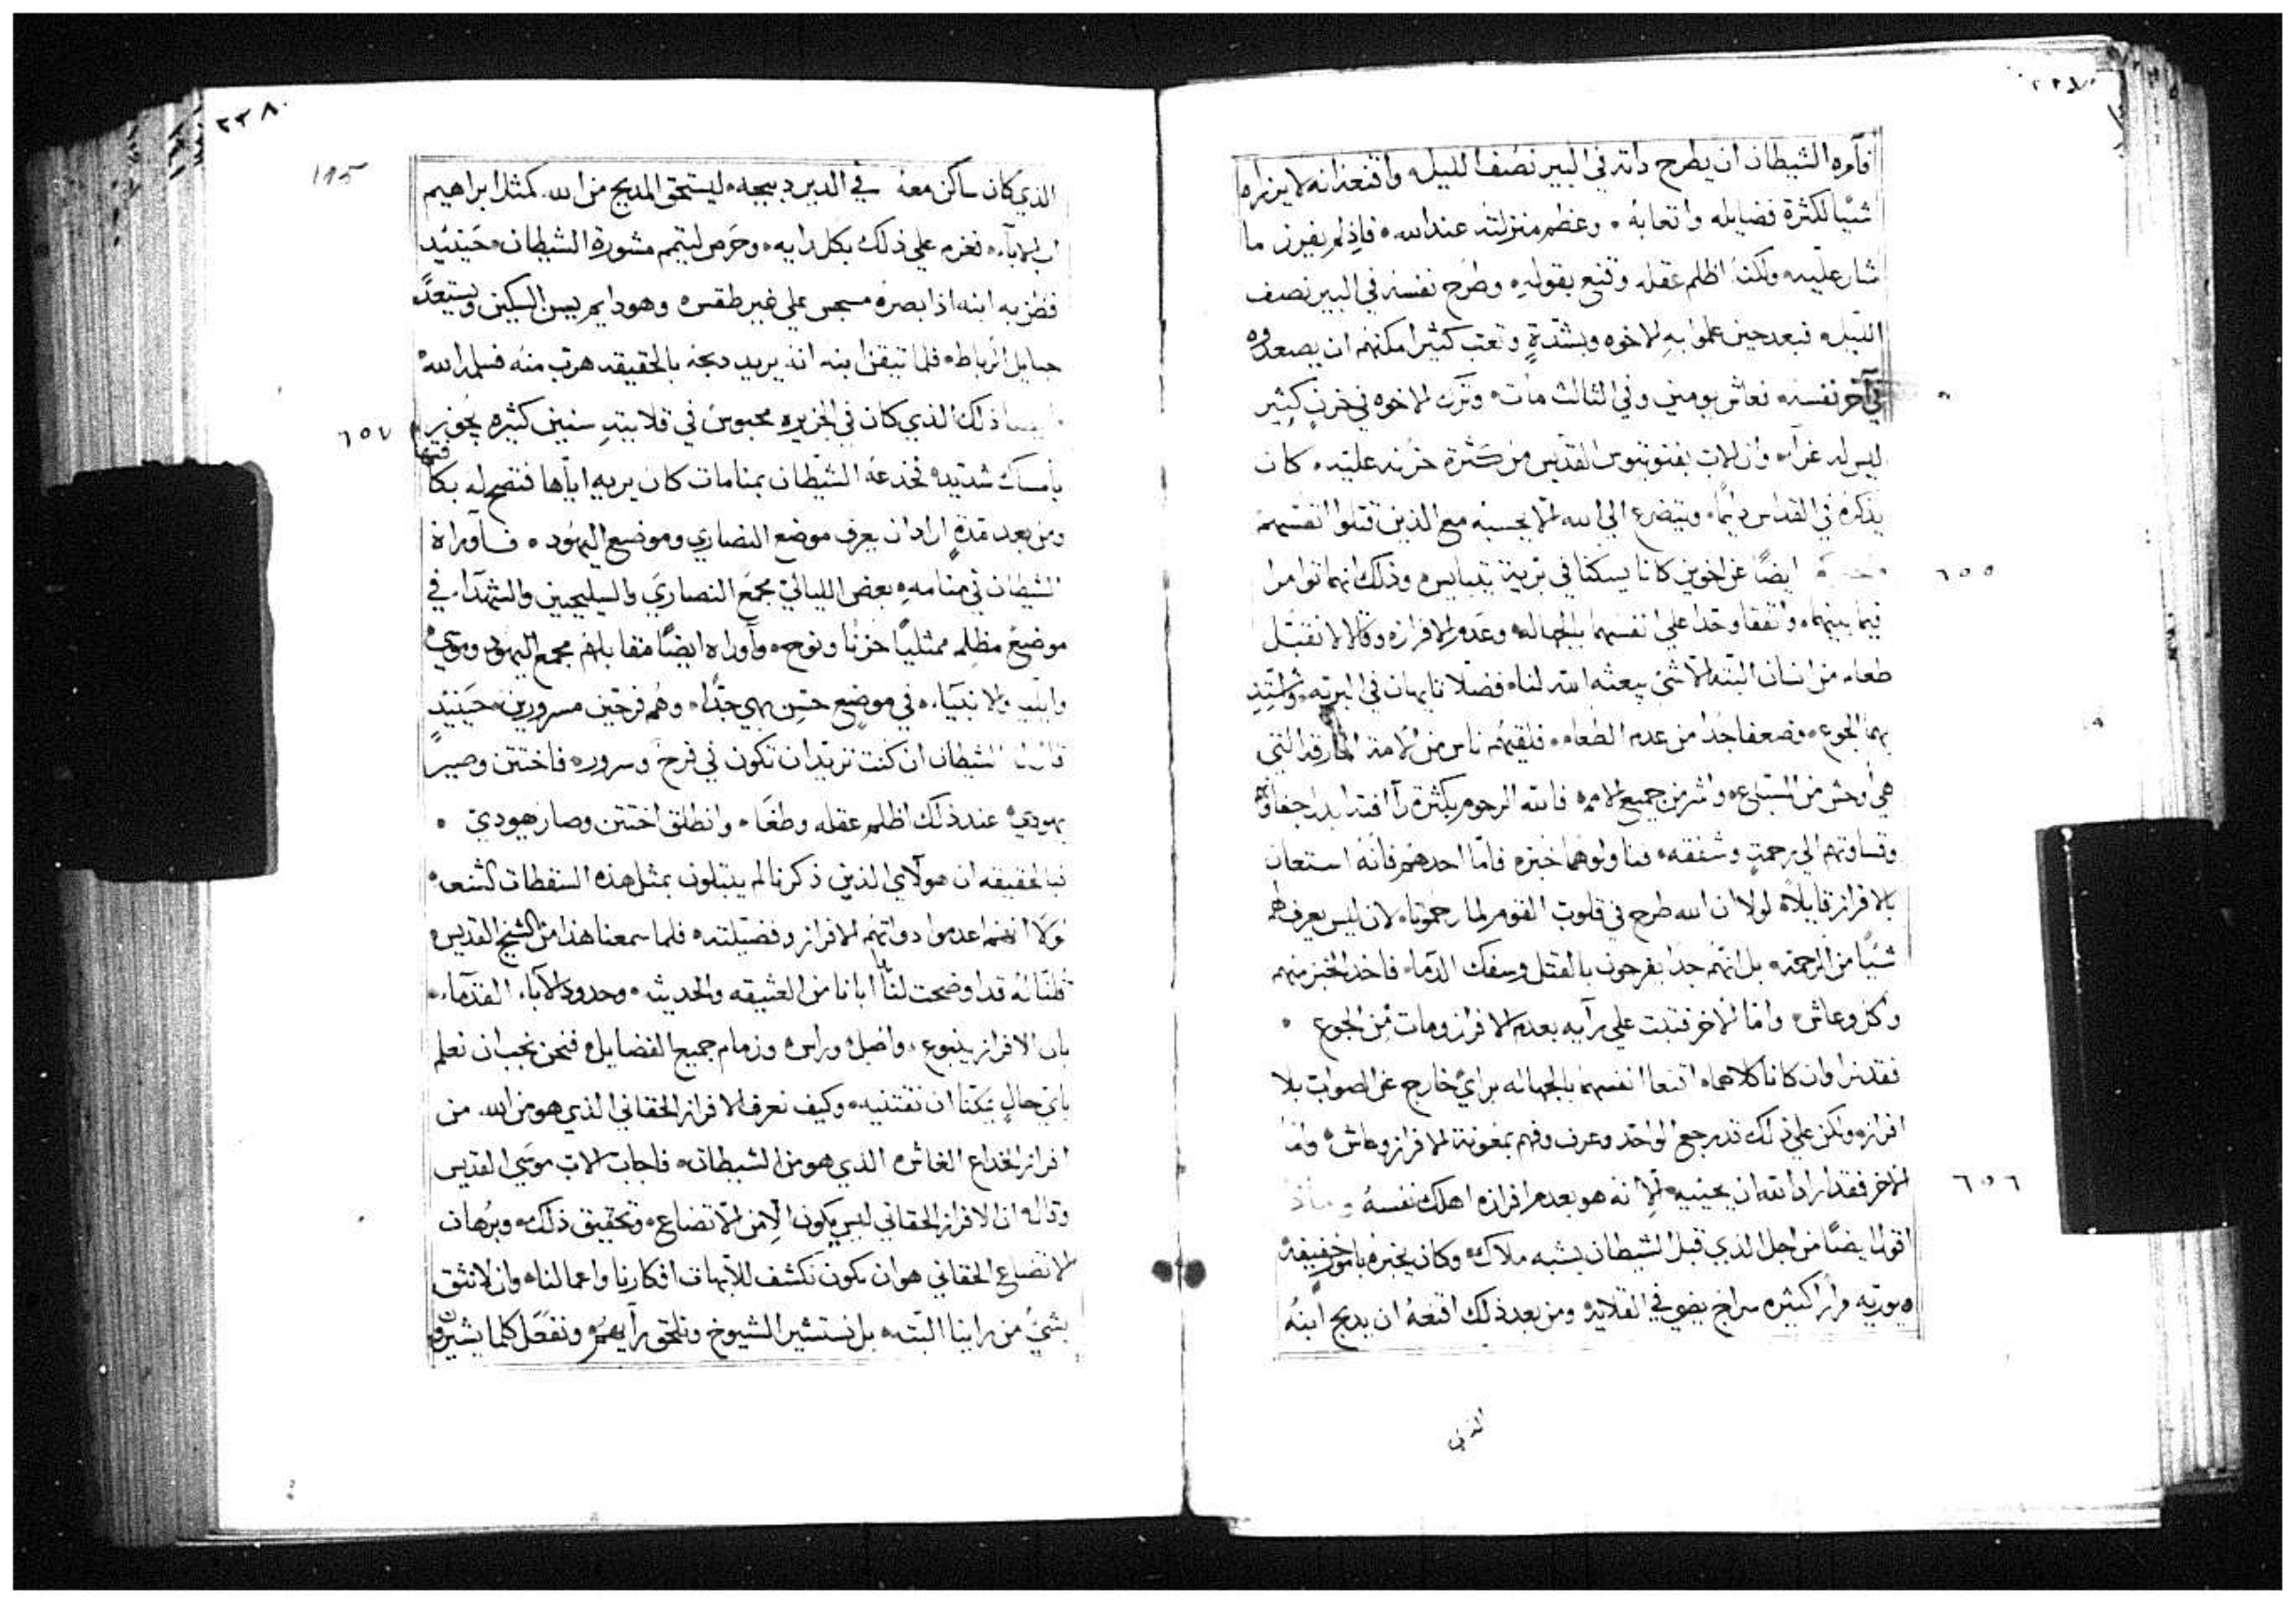 ٢٣٧
فآمره الشيطان ان يطرح داته في البير نصف الليل واقنعه انه لا يزراه
شيًا لكثرة فضايله واتعابه وعظم منزلته عند الله فاذ لم يفرز ما
شار عليه ولكن اظلم عقله وقنع بقوله وطرح نفسه في البير نصف
الليل فبعد حين علموا به الاخوه وبشدةٍ وتعب كثير امكنهم ان يصعدوه
في آخر نفسه فعاش يومين وفي الثالث مات وترك الاخوه في حزنٍ كثير
ليس له عزآء وان الاب بفنوتيوس القديس من كثرة حزنه عليه كان
يذكره في القداس دايمًا ويتضرع الي الله الا يحسبه مع الذين قتلوا انفسهم
٦٥٥
ايضًا عن اخوين كانا يسكنا في برية تيبايس وذلك انهما توامرا
فيما بينهما واتفقا وحدا علي انفسهما بالجهاله وعدم الافرازه وقالا لا نقبل
طعام من انسان البته الا شي يبعثه الله لنا فضلا تايهان في البريه واشتد
بهما الجوع وضعفا جدًا من عدم الطعام فلقيهم ناس من الامة المارقه التي
هي اوحش من السباع واشر من جميع الامم فالله الرحوم بكثرة رآفته ابدل جفاوتهم
وقساوتهم الي رحمةٍ وشفقه فناولوهما خبزه فامّا احدهم فانه استعان
بالافراز قايلاً لولا ان الله طرح في قلوب القوم لما رحمونا لان ليس يعرف لهم
شيًا من الرحمه بل انهم جدا يفرحون بالقتل وسفك الدما فاخذ الخبز منهم
واكل وعاش واما الاخر فتبت علي رآيه بعدم الافراز ومات من الجوع
فقد نرا وان كانا كلاهما اتبعا انفسهما بالجهاله براي خارج عن الصواب بلا
افرازه ولكن علي ذلك قد رجع الواحد وعرف وفهم بمعونة الافراز وعاش واما
٦٥٦
الاخر فقد اراد الله ان يحييه الا انه هو بعدم افرازه اهلك نفسه وماذا
اقول ايضًا من اجل الذي قبل الشيطان بشبه ملاك وكان يخبره بامور خفيفه
ويوريه مرارًا كثيره سراج يضي في القلايه ومن بعد ذلك اقنعه ان يدبح ابنه
الذي
٢٣٨
195
الذي كان ساكن معه في الدير دبيحه ليستحق المديح من الله كمثل ابراهيم
اب الابآء فعزم علي ذلك بكل رايه وحرص ليتمم مشورة الشيطان حينيد
فظن به ابنه اذ ابصره مسجس علي غير طقسه وهو دايم يسن السكين ويستعد
حبايل الرباط فلما تيقن ابنه انه يريد دبحه بالحقيقه هرب منه فسلم الله
٦٥٧
ذلك الذي كان في الجزيره محبوس في قلايته سنين كثيره يجوز فيها
بامساك شديد فخدعه الشيطان بمنامات كان يريه اياها فتصح له بكا
ومن بعد مدةٍ اراد ان يعرف موضع النصاري وموضع اليهود فآوراه
الشيطان في منامه بعض الليالي مجمع النصاري والسليحين والشهدآء في
موضع مظلم ممتلياً حزنا ونوح وآوراه ايضًا مقابلهم مجمع اليهود وموسي
والانبياء في موضع حسن بهي جدًا وهم فرحين مسرورين حينيد
الشيطان ان كنت تريد ان تكون في فرح وسروره فاختتن وصير
يهودي عند ذلك اظلم عقله وطغا وانطلق اختتن وصار يهودي
فبالحقيقه ان هولاي الذين ذكرنا لم يبتلون بمثل هذه السقطات الشنعه
لولا انهم اعدموا دواتهم الافراز وفضيلته فلما سمعنا هذا من الشيخ القديس
قلنا له قد اوضحت لنا يا ابانا من العتيقه والحديثه وحدود الآباء القدماء
بان الافراز ينبوع واصل وراس وزمام جميع الفضايل فنحن نحب ان نعلم
باي حالٍ يمكنا ان نقتنيه وكيف نعرف الافراز الحقاني الذي هو من الله من
افراز الخداع الغاش الذي هو من الشيطان فاجاب الاب موسي القديس
وقال ان الافراز الحقاني ليس يكون الا من الاتضاع وتحقيق ذلك وبرهان
الاتضاع الحقاني هو ان نكون نكشف للآبهات افكارنا واعمالنا وان لا نثق
بشي من راينا البته بل نستشير الشيوخ ونلحق رآيهم ونفعل كلما يشيرون